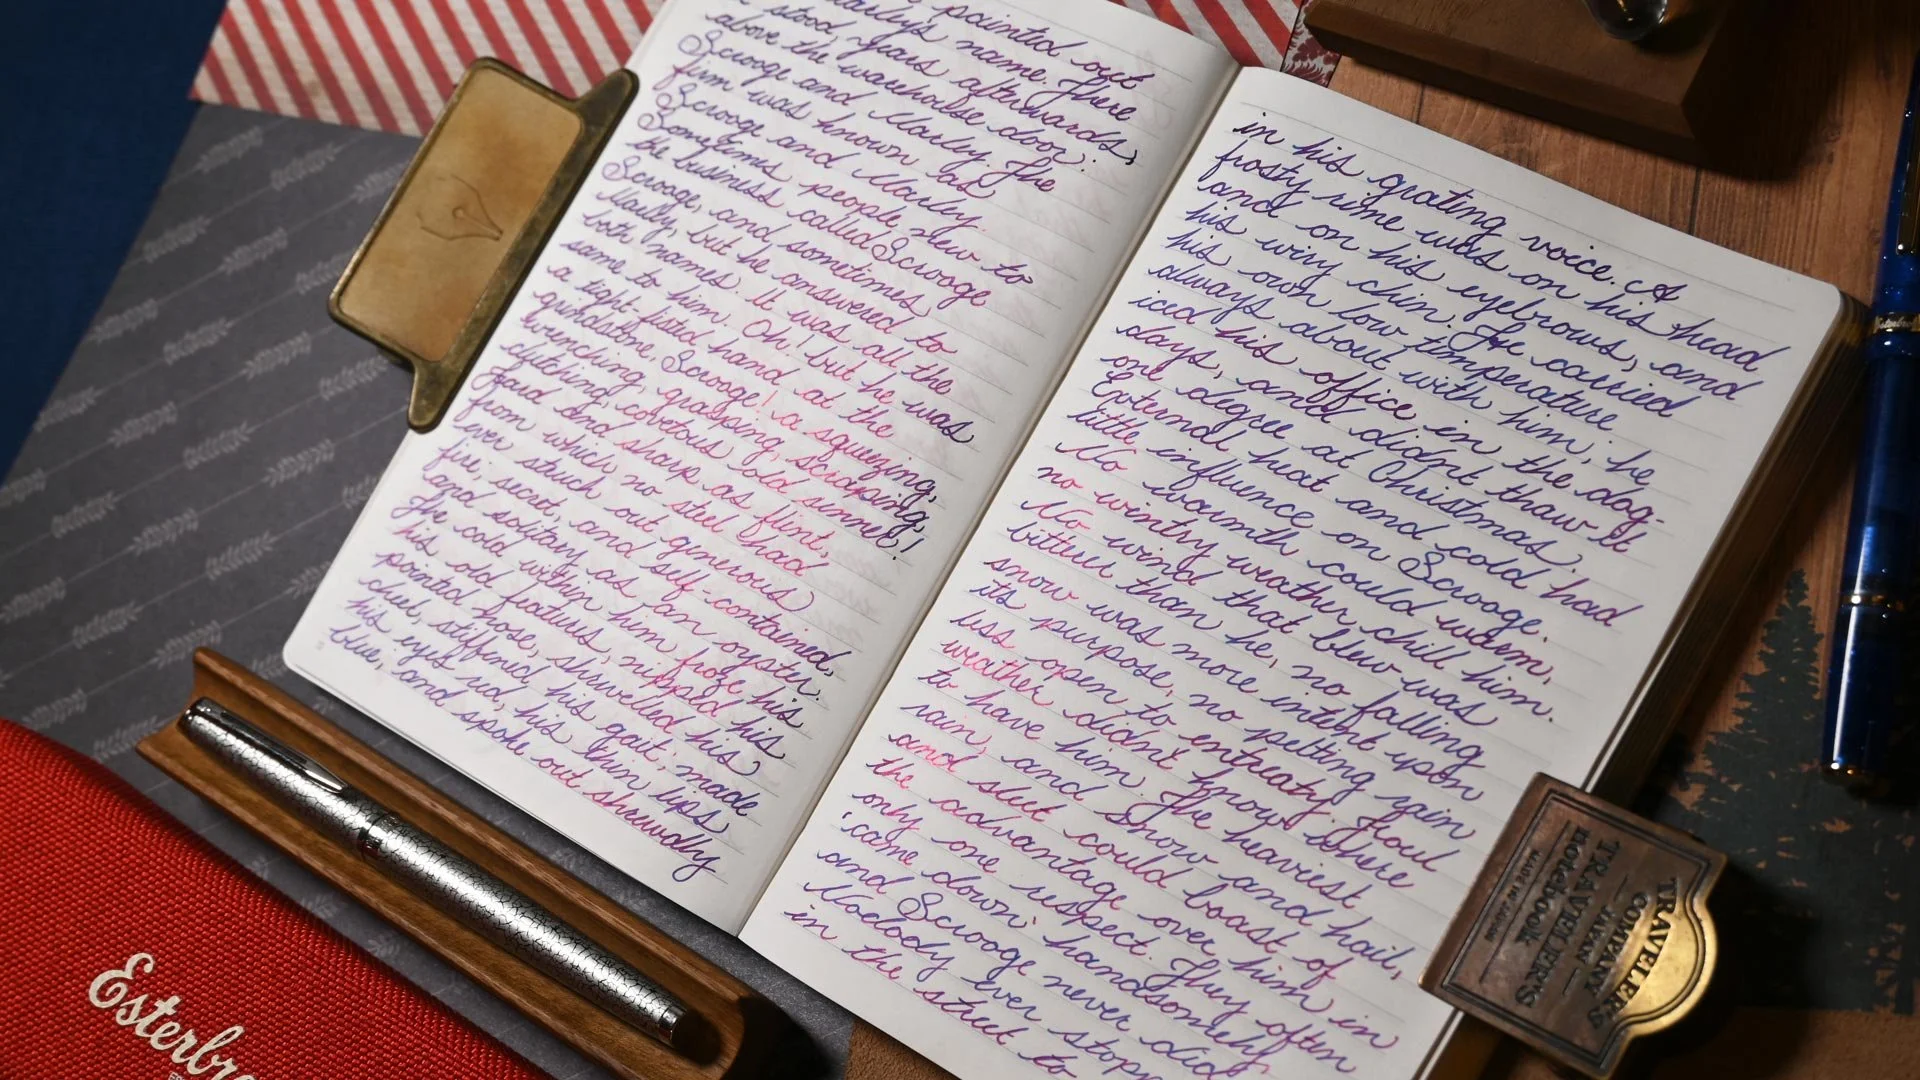 painted out
Marley's name. There
it stood, years afterwards,
above the warehouse door:
Scrooge and Marley. The
firm was known as
Scrooge and Marley.
Sometimes people new to
the business called Scrooge
Scrooge, and sometimes
Marley, but he answered to
both names. It was all the
same to him. Oh! but he was
a tight-fisted hand at the
grindstone, Scrooge! a squeezing,
wrenching, grasping, scraping,
clutching, covetous old sinner!
Hard and sharp as flint,
from which no steel had
ever struck out generous
fire; secret, and self-contained,
and solitary as an oyster.
The cold within him froze his
old features, nipped his
pointed nose, shrivelled his
cheek, stiffened his gait; made
his eyes red, his thin lips
blue; and spoke out shrewdly
in his grating voice. A
frosty rime was on his head
and on his eyebrows, and
his wiry chin. He carried
his own low temperature
always about with him; he
iced his office in the dog-
days, and didn't thaw it
one degree at Christmas.
External heat and cold had
little influence on Scrooge.
No warmth could warm,
no wintry weather chill him.
No wind that blew was
bitterer than he, no falling
snow was more intent upon
its purpose, no pelting rain
less open to entreaty. Foul
weather didn't know where
to have him. The heaviest
rain, and snow and hail,
and sleet could boast of
the advantage over him in
only one respect. They often
'came down' handsomely
and Scrooge never did.
Nobody ever stopp
in the street to
Esterbro
TRAVELER'S
COMPANY
JAPAN
TRAVELER'S
notebook